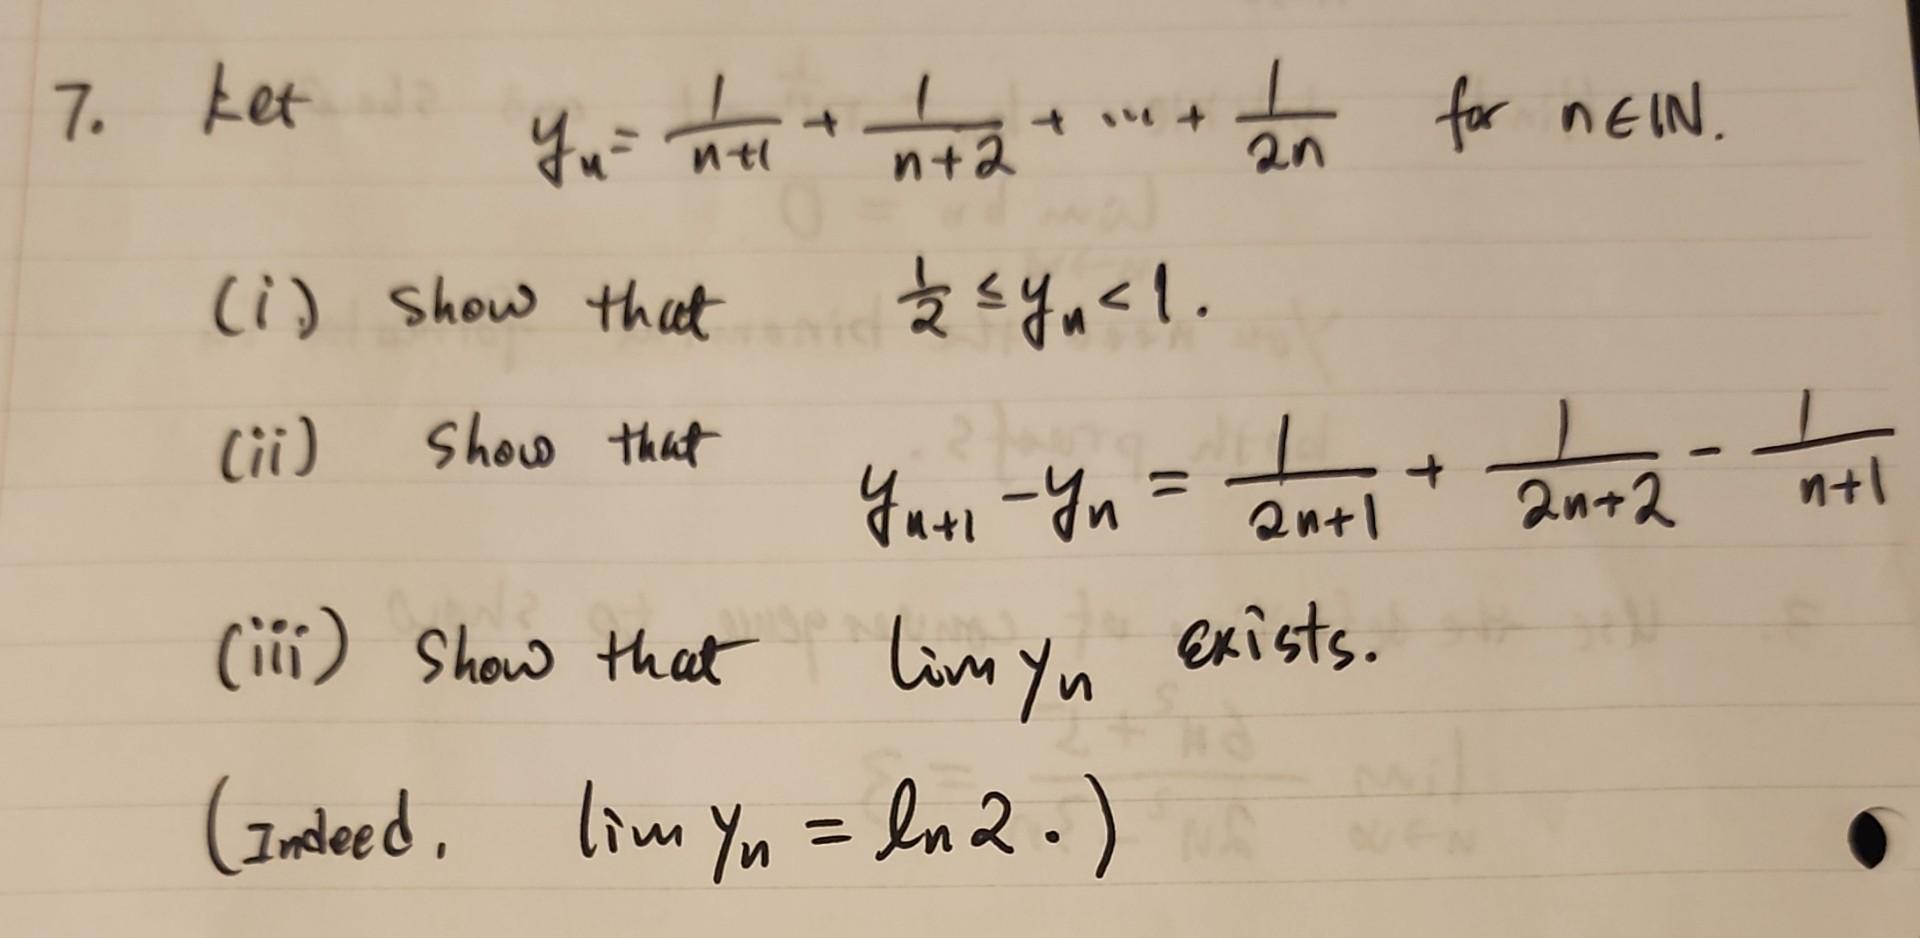 7. Let yₙ = 1/(n+1) + 1/(n+2) + ... + 1/(2n) for n ∈ ℕ.
(i) Show that 1/2 ≤ yₙ < 1.
(ii) Show that yₙ₊₁ - yₙ = 1/(2n+1) + 1/(2n+2) - 1/(n+1)
(iii) Show that lim yₙ exists.
(Indeed, lim yₙ = ln 2.)